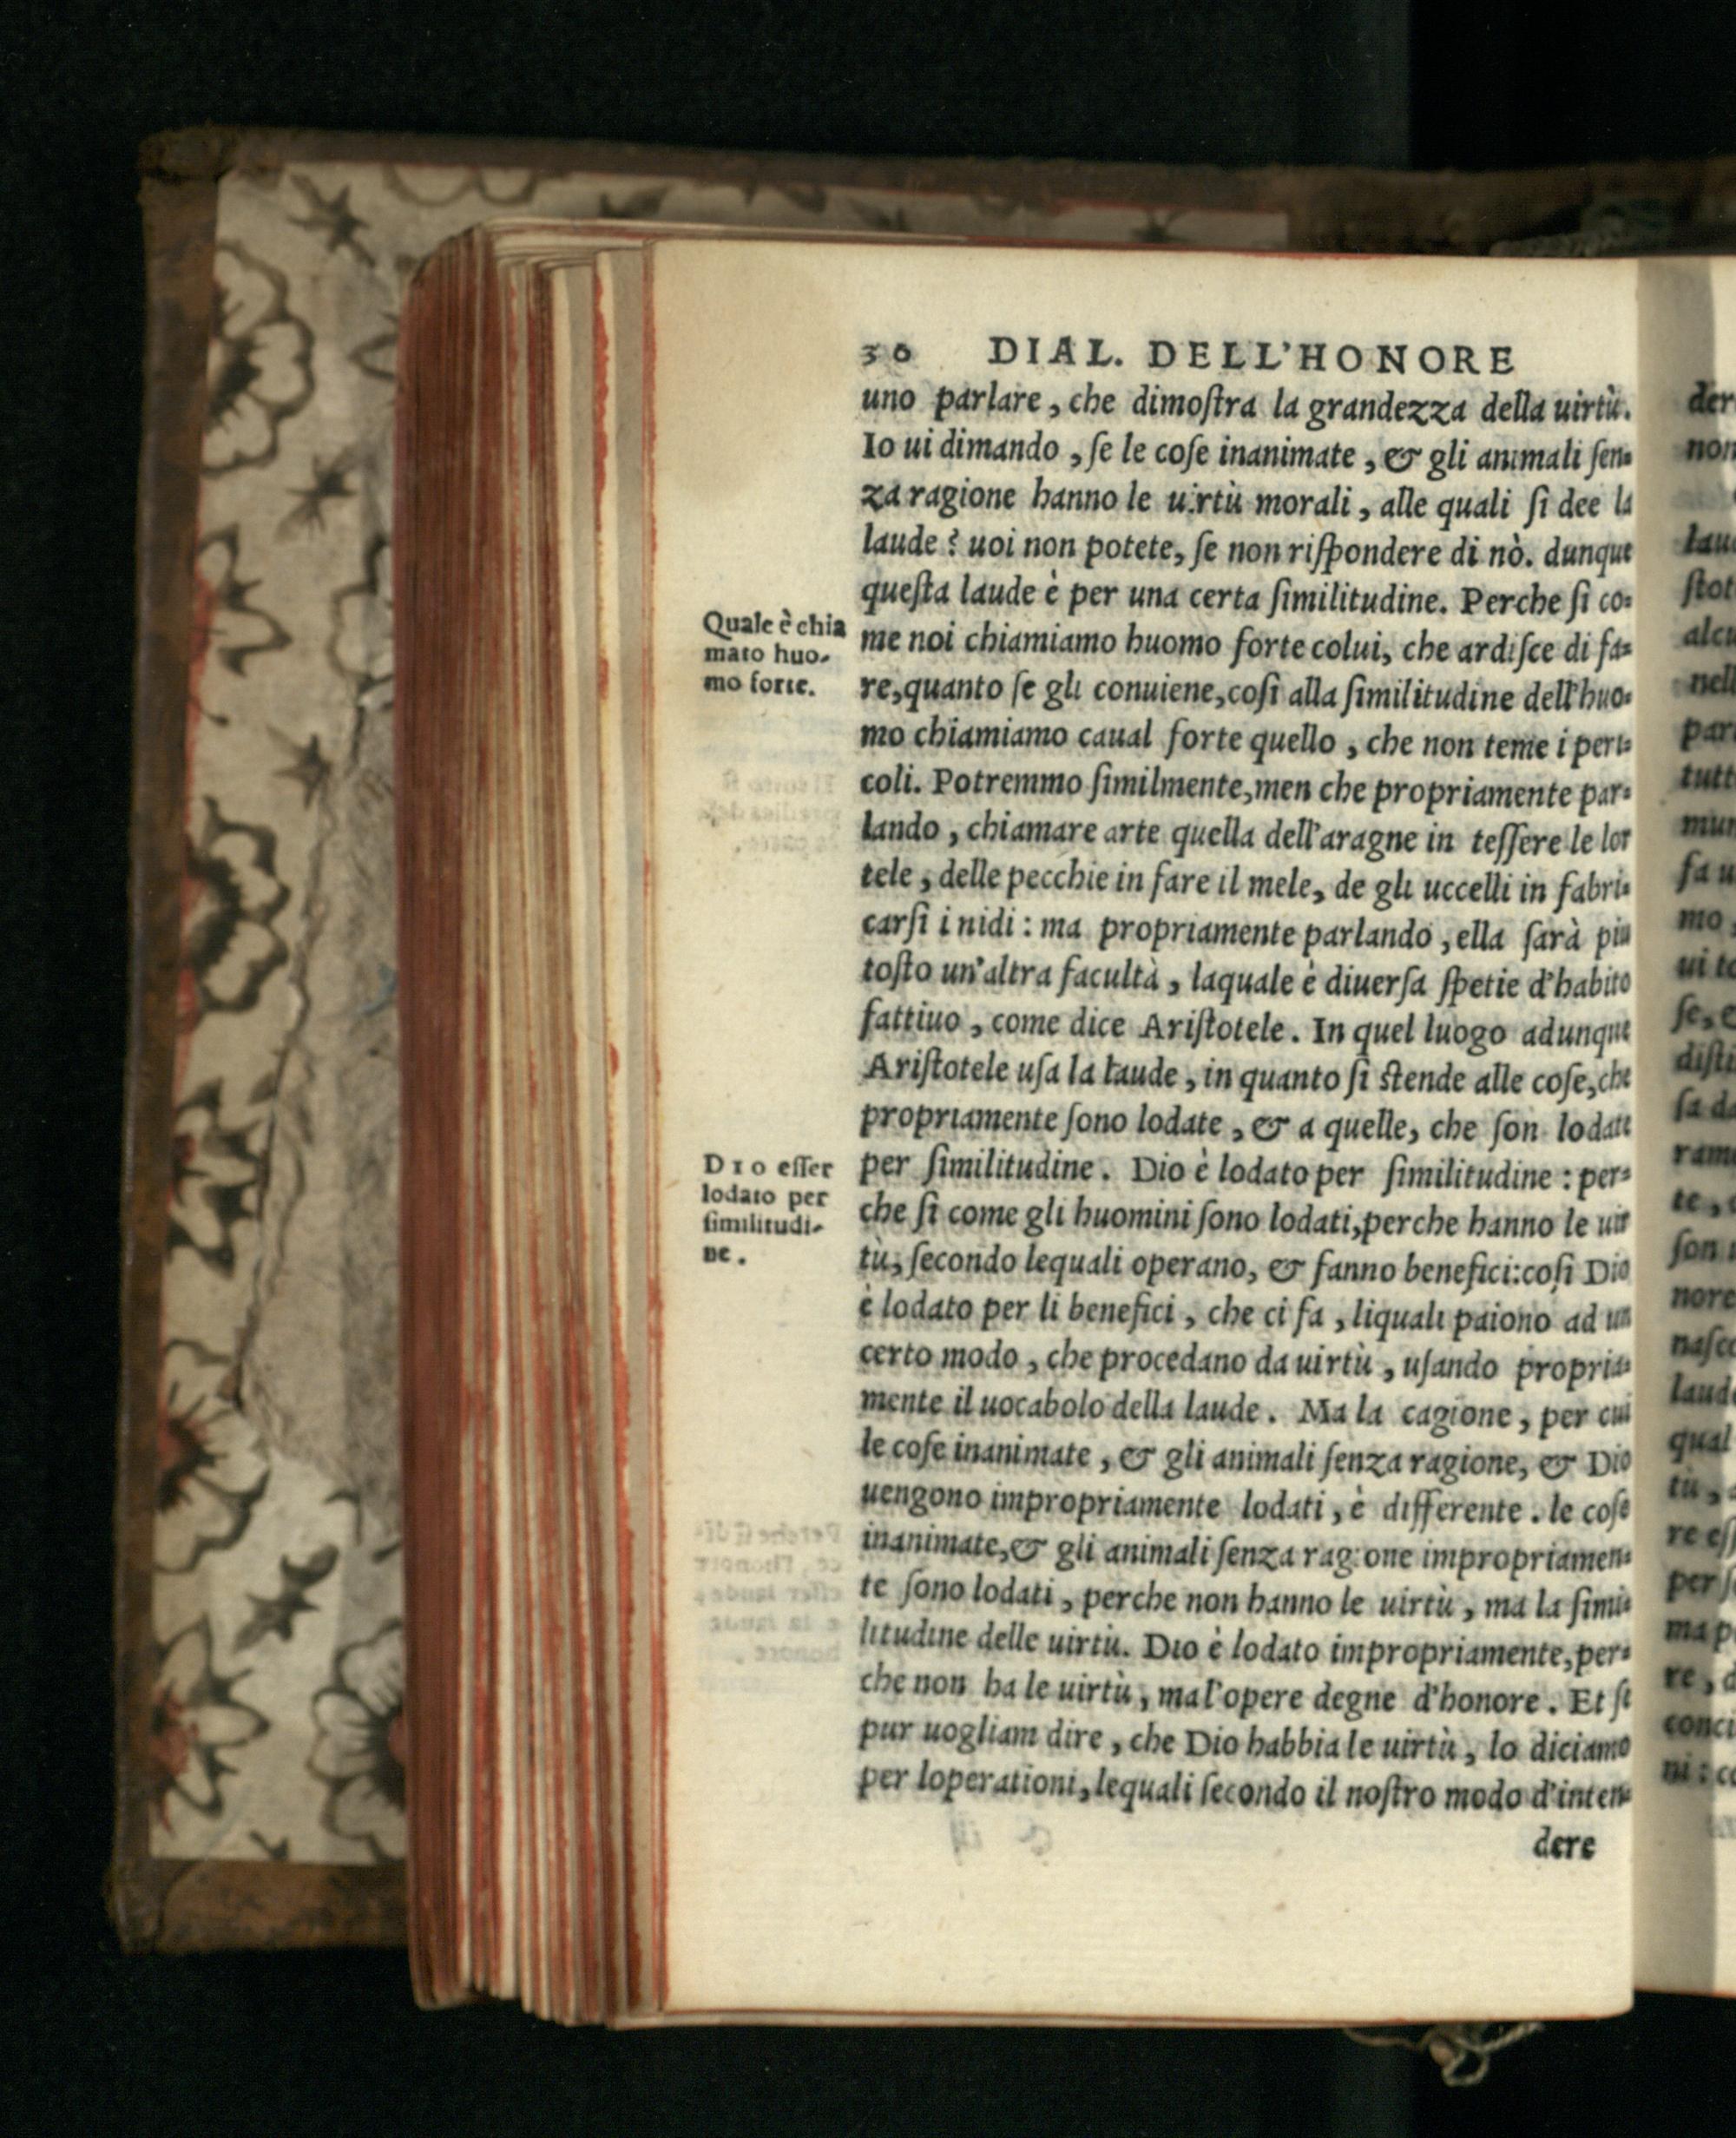 30 DIAL. DELL'HONORE
uno parlare, che dimoſtra la grandezza della uirtù.
Io ui dimando, ſe le coſe inanimate, & gli animali ſen-
za ragione hanno le uirtù morali, alle quali ſi dee la
laude? uoi non potete, ſe non riſpondere di nò. dunque
queſta laude è per una certa ſimilitudine. Perche ſi co-
me noi chiamiamo huomo forte colui, che ardiſce di fa-
re, quanto ſe gli conuiene, coſi alla ſimilitudine dell'huo-
mo chiamiamo caual forte quello, che non teme i peri-
coli. Potremmo ſimilmente, men che propriamente par-
lando, chiamare arte quella dell'aragne in teſſere le lor
tele, delle pecchie in fare il mele, de gli uccelli in fabri-
carſi i nidi: ma propriamente parlando, ella ſarà piu
toſto un'altra facultà, laquale è diuerſa ſpetie d'habito
fattiuo, come dice Ariſtotele. In quel luogo adunque
Ariſtotele uſa la laude, in quanto ſi ſtende alle coſe, che
propriamente ſono lodate, & a quelle, che ſon lodate
per ſimilitudine. Dio è lodato per ſimilitudine: per-
che ſi come gli huomini ſono lodati, perche hanno le uir
tù, ſecondo lequali operano, & fanno benefici: coſi Dio
è lodato per li benefici, che ci fa, liquali paiono ad un
certo modo, che procedano da uirtù, uſando propria-
mente il uocabolo della laude. Ma la cagione, per cui
le coſe inanimate, & gli animali ſenza ragione, & Dio
uengono impropriamente lodati, è differente. le coſe
inanimate, & gli animali ſenza ragione impropriamen-
te ſono lodati, perche non hanno le uirtù, ma la ſimi-
litudine delle uirtù. Dio è lodato impropriamente, per-
che non ha le uirtù, ma l'opere degne d'honore. Et ſe
pur uogliam dire, che Dio habbia le uirtù, lo diciamo
per loperationi, lequali ſecondo il noſtro modo d'inten-
dere
Quale è chia
mato huo-
mo forte.
DIO eſſer
lodato per
ſimilitudi-
ne.